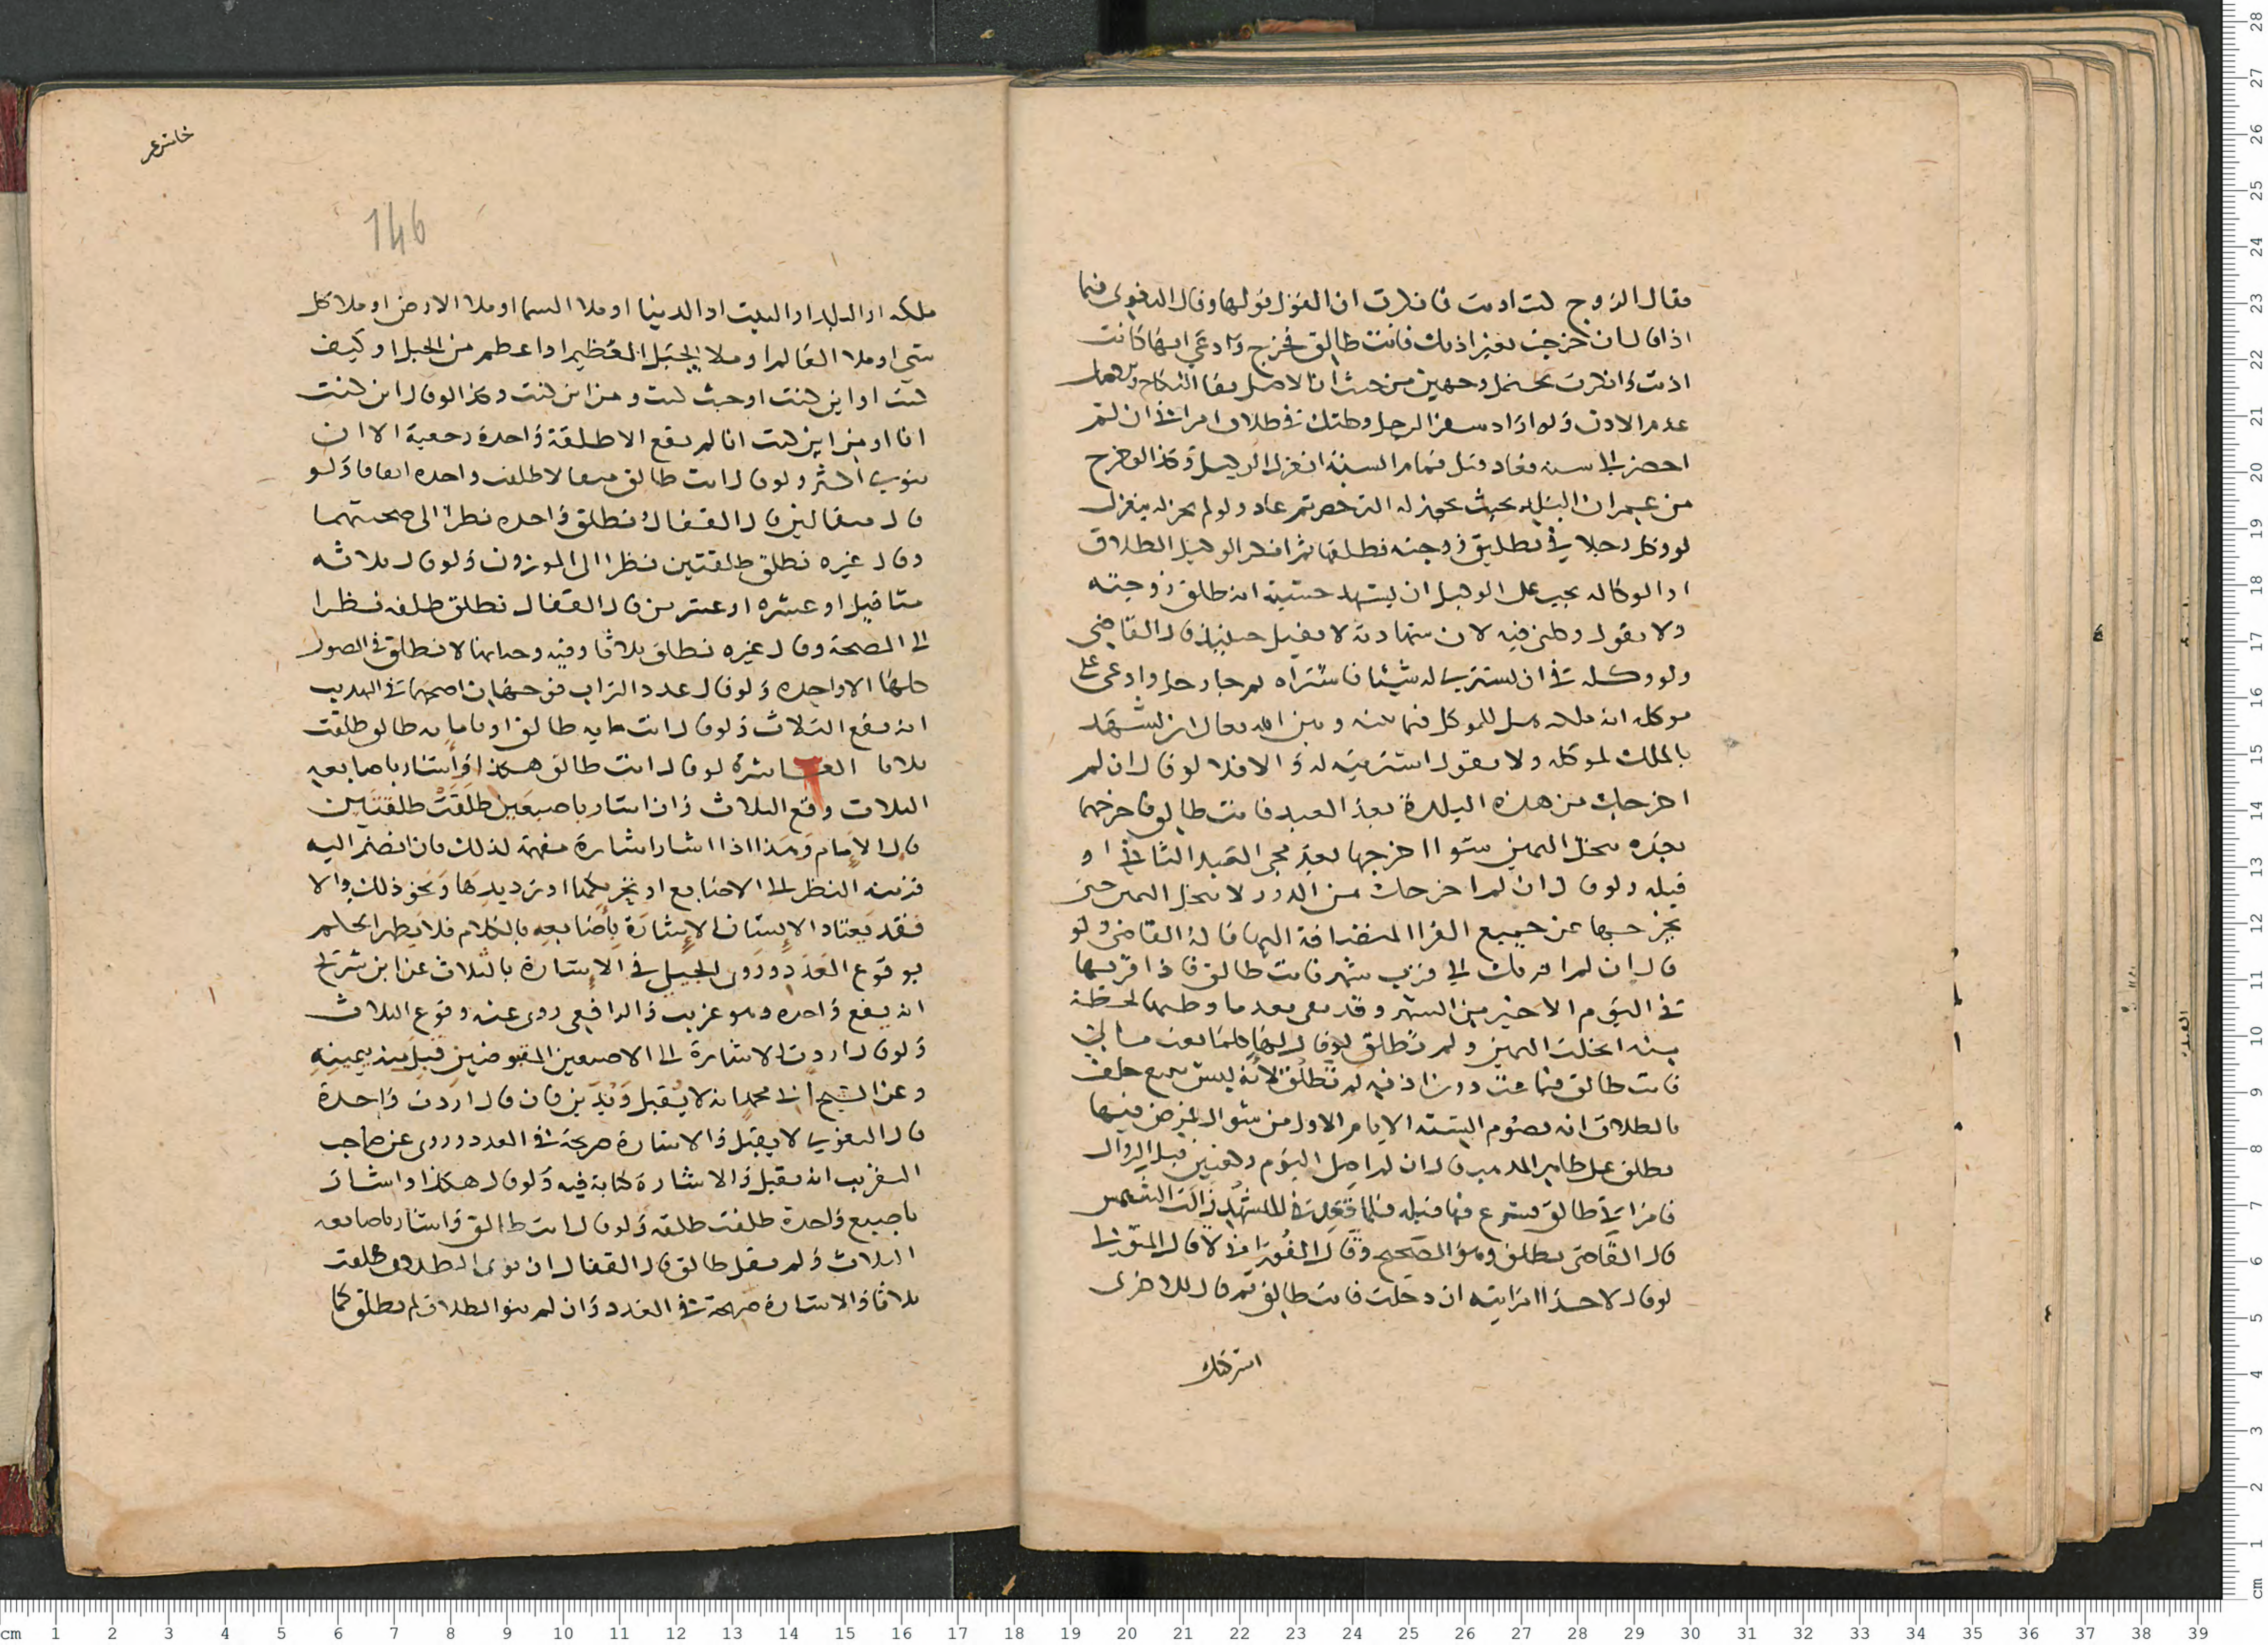 فقال الزوج كنت اذنت فانكرت ان القول قولها وقال البغوي فيما
اذا قال ان خرجت بغير اذنك فانت طالق فخرج وادعي انها كانت
اذنت وانكرت يحتمل وجهين من حيث ان الاصل بقا النكاح
عدم الاذن ولو اراد سفرا الرجل وكلتك في طلاق امراتي ان لم
احضر الى سنه فعاد قبل تمام السنة انعزل الوكيل وكذا لو خرج
من عمران البلد بحيث يجوز له الترخص ثم عاد ولو لم يجز له ينعزل
لو وكل رجلا في تطليق زوجته فطلقها ثم انكر الوكيل الطلاق
او الوكاله يجب على الوكيل ان يشهد حسبة انه طلق زوجته
ولا يقول وكلني فيه لان شهادته لا تقبل حينئذ قال القاضي
ولو وكله في ان يشتري له شيئا فاشتراه ثم جا رجل وادعى على
موكله انه ملكه هل للموكل فيما بينه وبين الله تعالى ان يشهد
بالملك لموكله ولا يقول اشتريته له والا فلا لو قال ان لم
اخرجك من هذه البلدة بعد العيد فانت طالق فاخرجها
بعده تنحل اليمين سوا اخرجها بعد مجي العيد الثاني او
قبله ولو قال ان لم اخرجك من الدور لا تنحل اليمين حتى
يخرجها عن جميع القرا المضافة اليها قاله القاضي ولو
قال ان لم اقربك الى قرب شهر فانت طالق فاذا قربها
في اليوم الاخير من الشهر وقد بقي بعد ما وطيها لحظة
منه انحلت اليمين ولم تطلق لو قال لها كلما
فانت طالق فباعت دون اذنه لم تطلق لانه ليس
بالطلاق انه يصوم الستة الايام الاول من شوال فمرض فيها
تطلق على ظاهر المذهب قال ان لم اصل اليوم ركعتين قبل الزوال
فامراتي طالق فشرع فيها قبله فلما قعد في التشهد زالت الشمس
قال القاضي تطلق وهو الصحيح وقال الفوراني لا قال المتولي
لو قال لاحدا امراتيه ان دخلت فانت طالق ثم قال للاخرى
اشركتك
خامس عشر
146
ملكه او البلد او البيت او الدنيا او ملا السما او ملا الارض او ملا كل
شي او ملا العالم او ملا الجبل العظيم او اعظم من الجبل او كيف
كنت او اين كنت او حيث كنت ومن اين كنت وكذا لو قال اين كنت
انا او من اين كنت انا لم يقع الا طلقة واحدة رجعية الا ان
ينوي اكثر ولو قال انت طالق مثقالا طلقت واحده اتفاقا ولو
قال مثقالين قال القفال تطلق واحده نظرا الى صحتهما
وقال غيره تطلق طلقتين نظرا الى الموزون ولو قال ثلاثه
مثاقيل او عشره او عشرين قال القفال تطلق طلقه نظرا
الى الصحة وقال غيره تطلق ثلاثا وفيه وجه انها لا تطلق في الصور
كلها الا واحده ولو قال عدد التراب فوجهان اصحهما في التهذيب
انه يقع الثلاث ولو قال انت مايه طالق او بامايه طالق طلقت
ثلاثا العاشرة لو قال انت طالق هكذا واشار باصابعه
الثلاث وقع الثلاث وان اشار باصبعين طلقت طلقتين
قال الامام وهذا اذا اشار اشارة مفهمة لذلك فان انضم اليه
قرينة النظر الى الاصابع او تحريكها او ترديدها ونحو ذلك والا
فقد يعتاد الانسان الاشارة باصابعه بالكلام فلا يظهر الحكم
بوقوع العدد وروى الجيلي في الاشارة بالثلاث عن ابن سريج
انه يقع واحده وهو غريب والرافعي روى عنه وقوع الثلاث
ولو قال اردت الاشارة الى الاصبعين المقبوضين قبل منه بيمينه
وعن الشيخ ابي محمد انه لا يقبل ويدين فان قال اردت واحدة
قال البغوي لا يقبل والاشارة صريحة في العدد وروى عن صاحب
التقريب انه يقبل والاشارة كناية فيه ولو قال هكذا واشار
باصبع واحدة طلقت طلقه ولو قال انت طالق واشار باصابعه
الثلاث ولم يقل طالق قال القفال ان نوى الطلاق طلقت
ثلاثا والاشارة صريحة في العدد وان لم ينو الطلاق لم تطلق كما